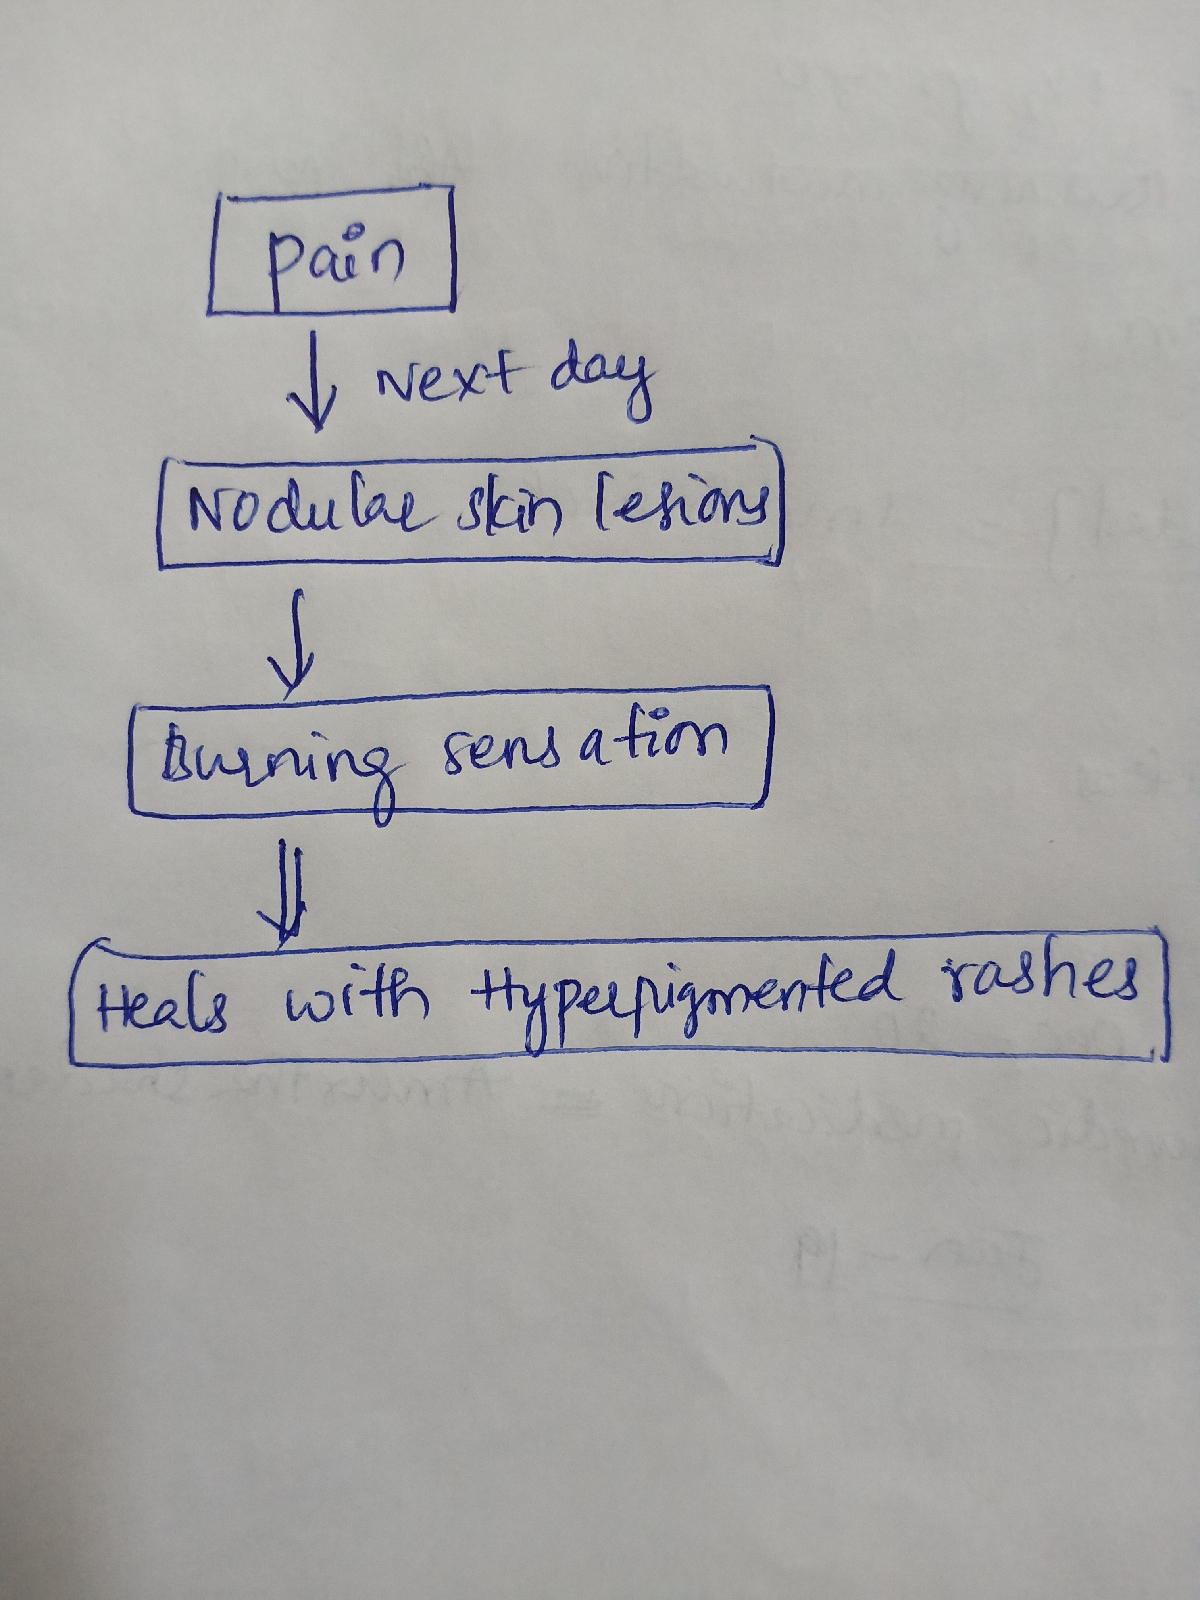 Pain
Next day
Nodular skin lesions
Burning sensation
Heals with Hyperpigmented rashes